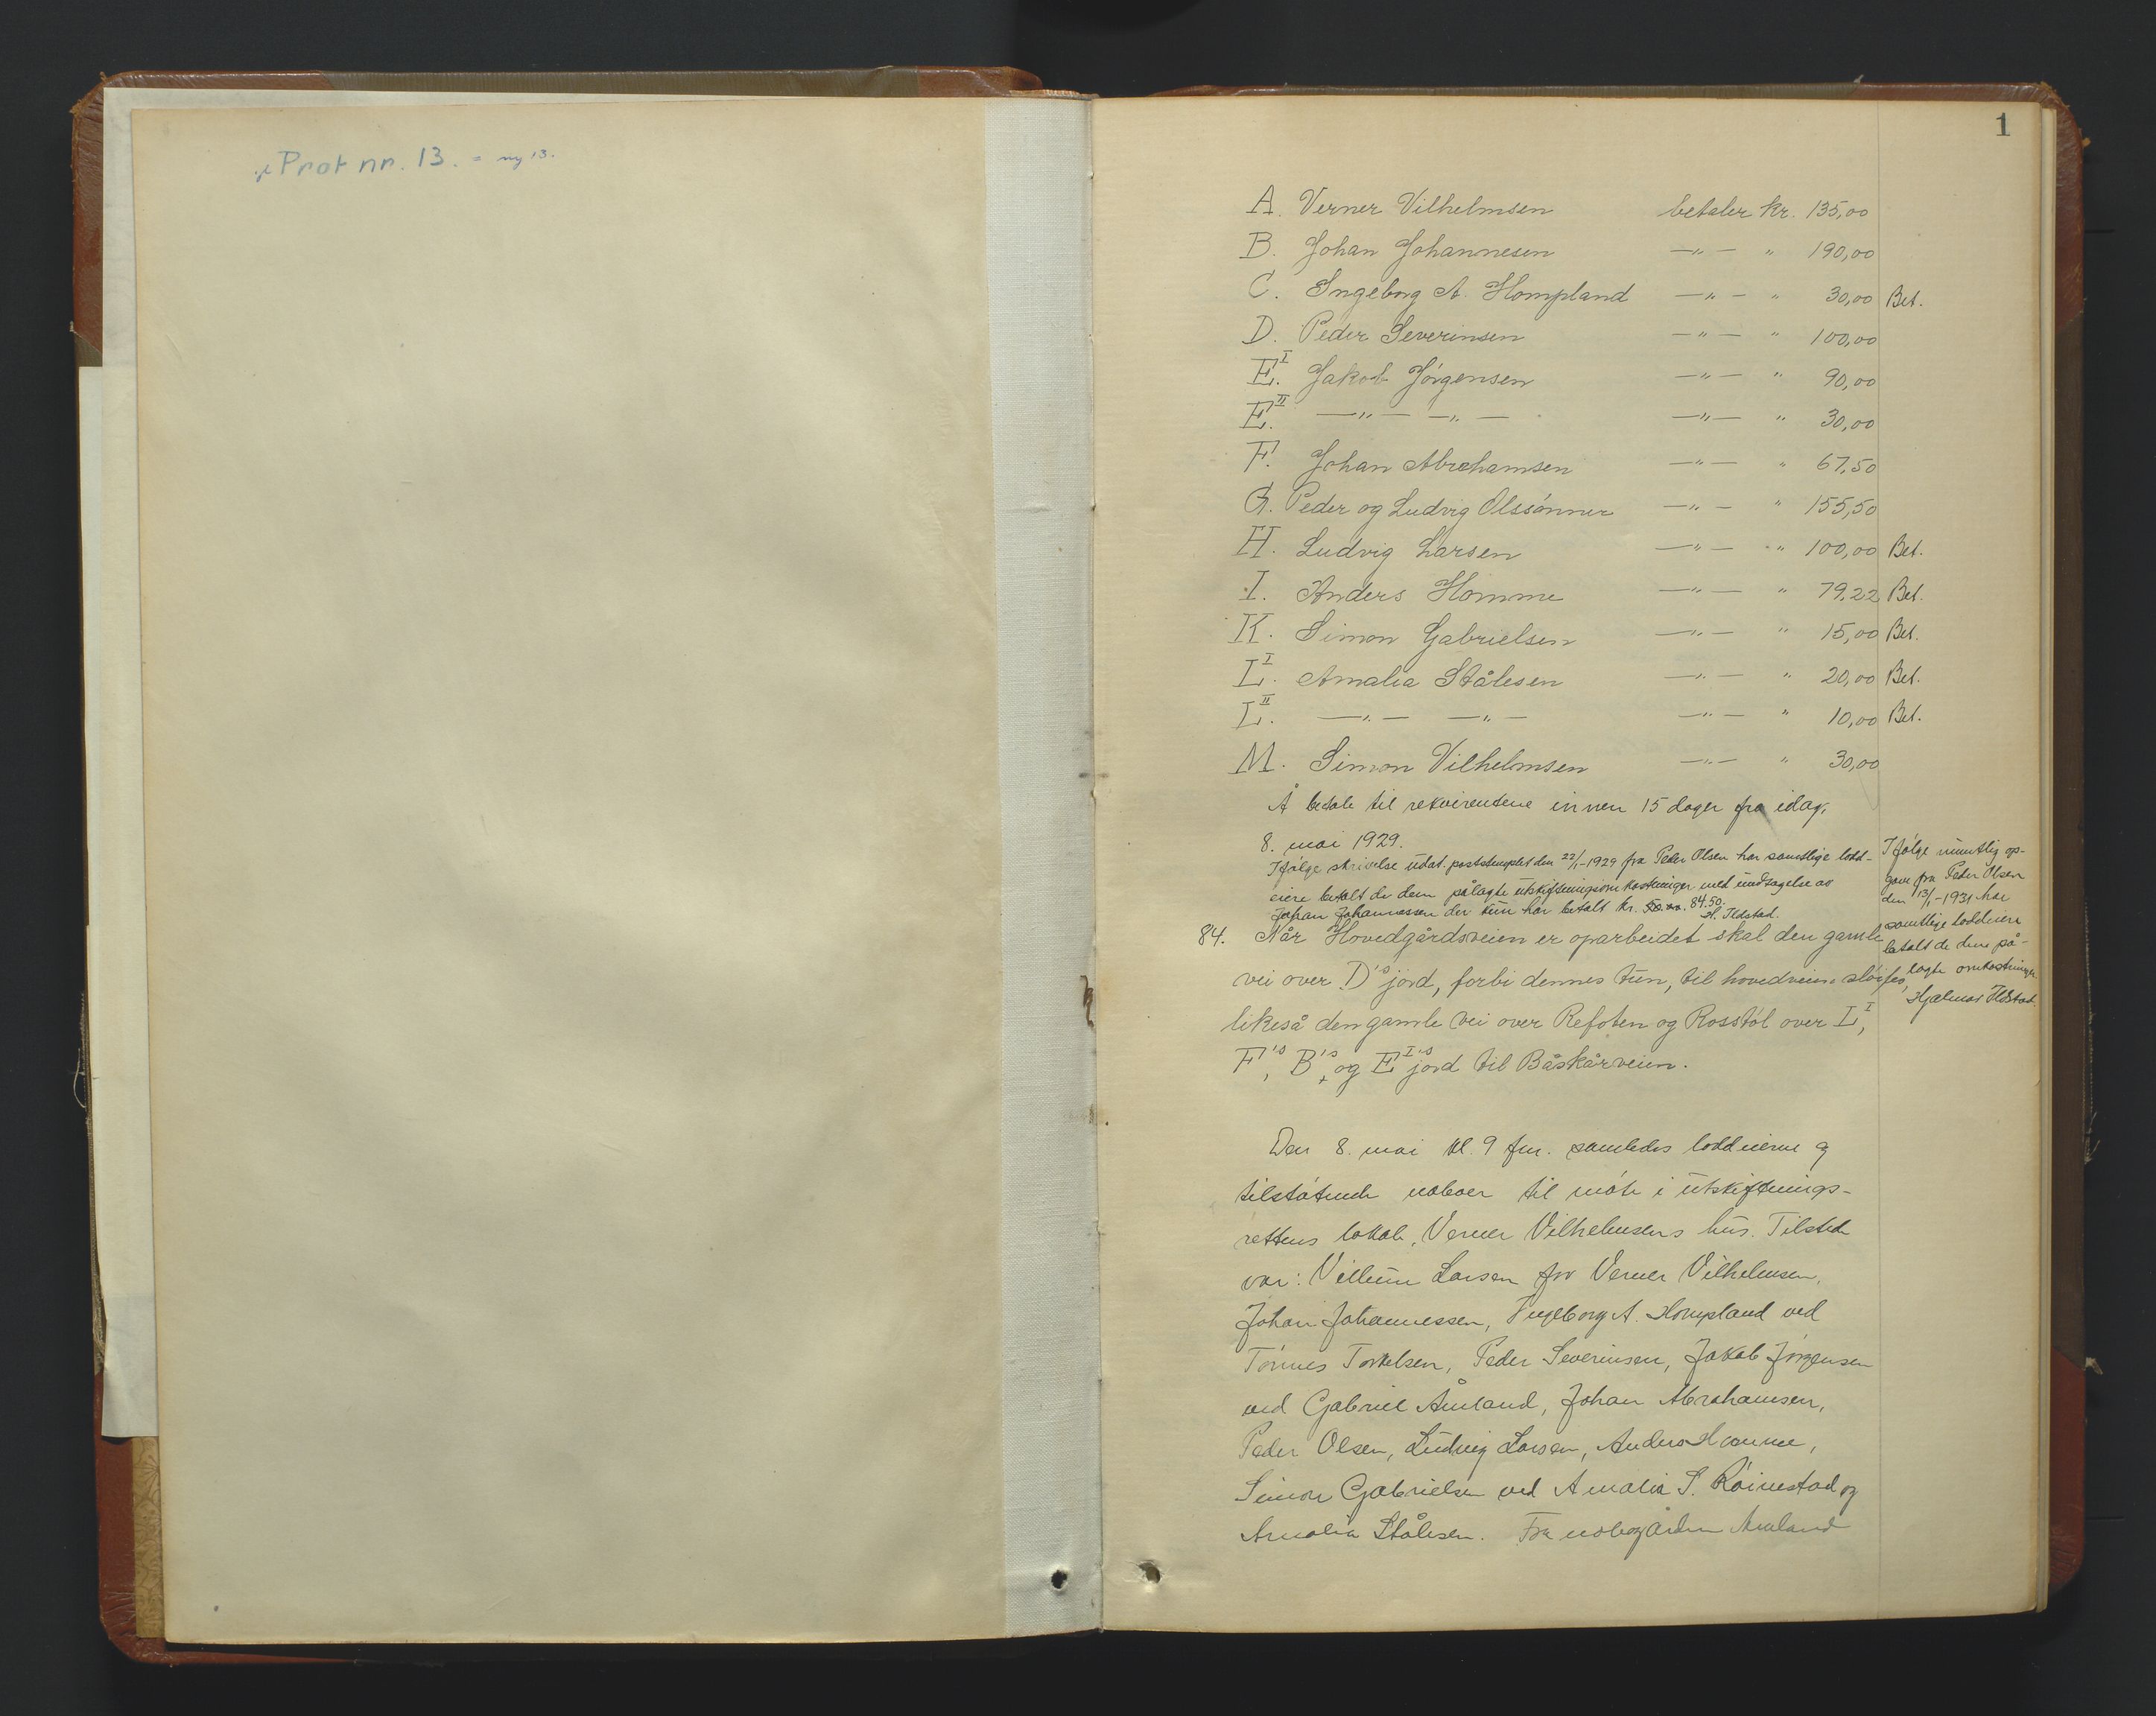 Prot nr. 13. = ny 13.
1
A. Verner Vilhelmsen betaler kr. 135,00
B. Johan Johannesen —"— " 190,00
C. Ingeborg A. Hompland —"— " 30,00 Bet.
D. Peder Severinsen —"— " 100,00
E.I Jakob Jörgensen —"— " 90,00
E.II —"— —"— —"— " 30,00
F. Johan Abrahamsen —"— " 67,50
G. Peder og Ludvig Olssönner —"— " 155,50
H. Ludvig Larsen —"— " 100,00 Bet.
I. Anders Homme —"— " 79,22 Bet.
K. Simon Gabrielsen —"— " 15,00 Bet.
L.I Amalia Stålesen —"— " 20,00 Bet.
L.II —"— —"— —"— " 10,00 Bet.
M. Simon Vilhelmsen —"— " 30,00
Å betale til rekvirentene innen 15 dager fra idag,
8. mai 1929.
Ifölge skrivelse udat. poststemplet den 22/1-1929 fra Peder Olsen har samtlige lodd-
eiere betalt de dem pålagte utskiftningsomkostninger med undtagelse av
Johan Johannessen der kun har betalt kr. 84.50.
H. Ildstad.
Ifölge muntlig op-
gave fra Peder Olsen
den 13/1-1931 har
samtlige loddeiere
betalt de dem på-
lagte omkostninger
Hjalmar Ildstad.
84. Når Hovedgårdsveien er oparbeidet skal den gamle
vei over D's jord, forbi dennes tun, til hovedveien slöifes,
likeså den gamle vei over Refoten og Rosstöl over L I,
F's, B's, og E I's jord til Båskårveien.
Den 8. mai kl. 9 fm. samledes loddeierne og
tilstötende naboer til möte i utskiftnings-
rettens lokale, Verner Vilhelmsens hus. Tilstede
var: Villum Larsen for Verner Vilhelmsen,
Johan Johannessen, Ingeborg A. Hompland ved
Tönnes Torkelsen, Peder Severinsen, Jakob Jörgensen
ved Gabriel Åmland, Johan Abrahamsen,
Peder Olsen, Ludvig Larsen, Anders Homme,
Simon Gabrielsen ved Amalia S. Röinestad og
Amalia Stålesen. Fra nabogården Amland